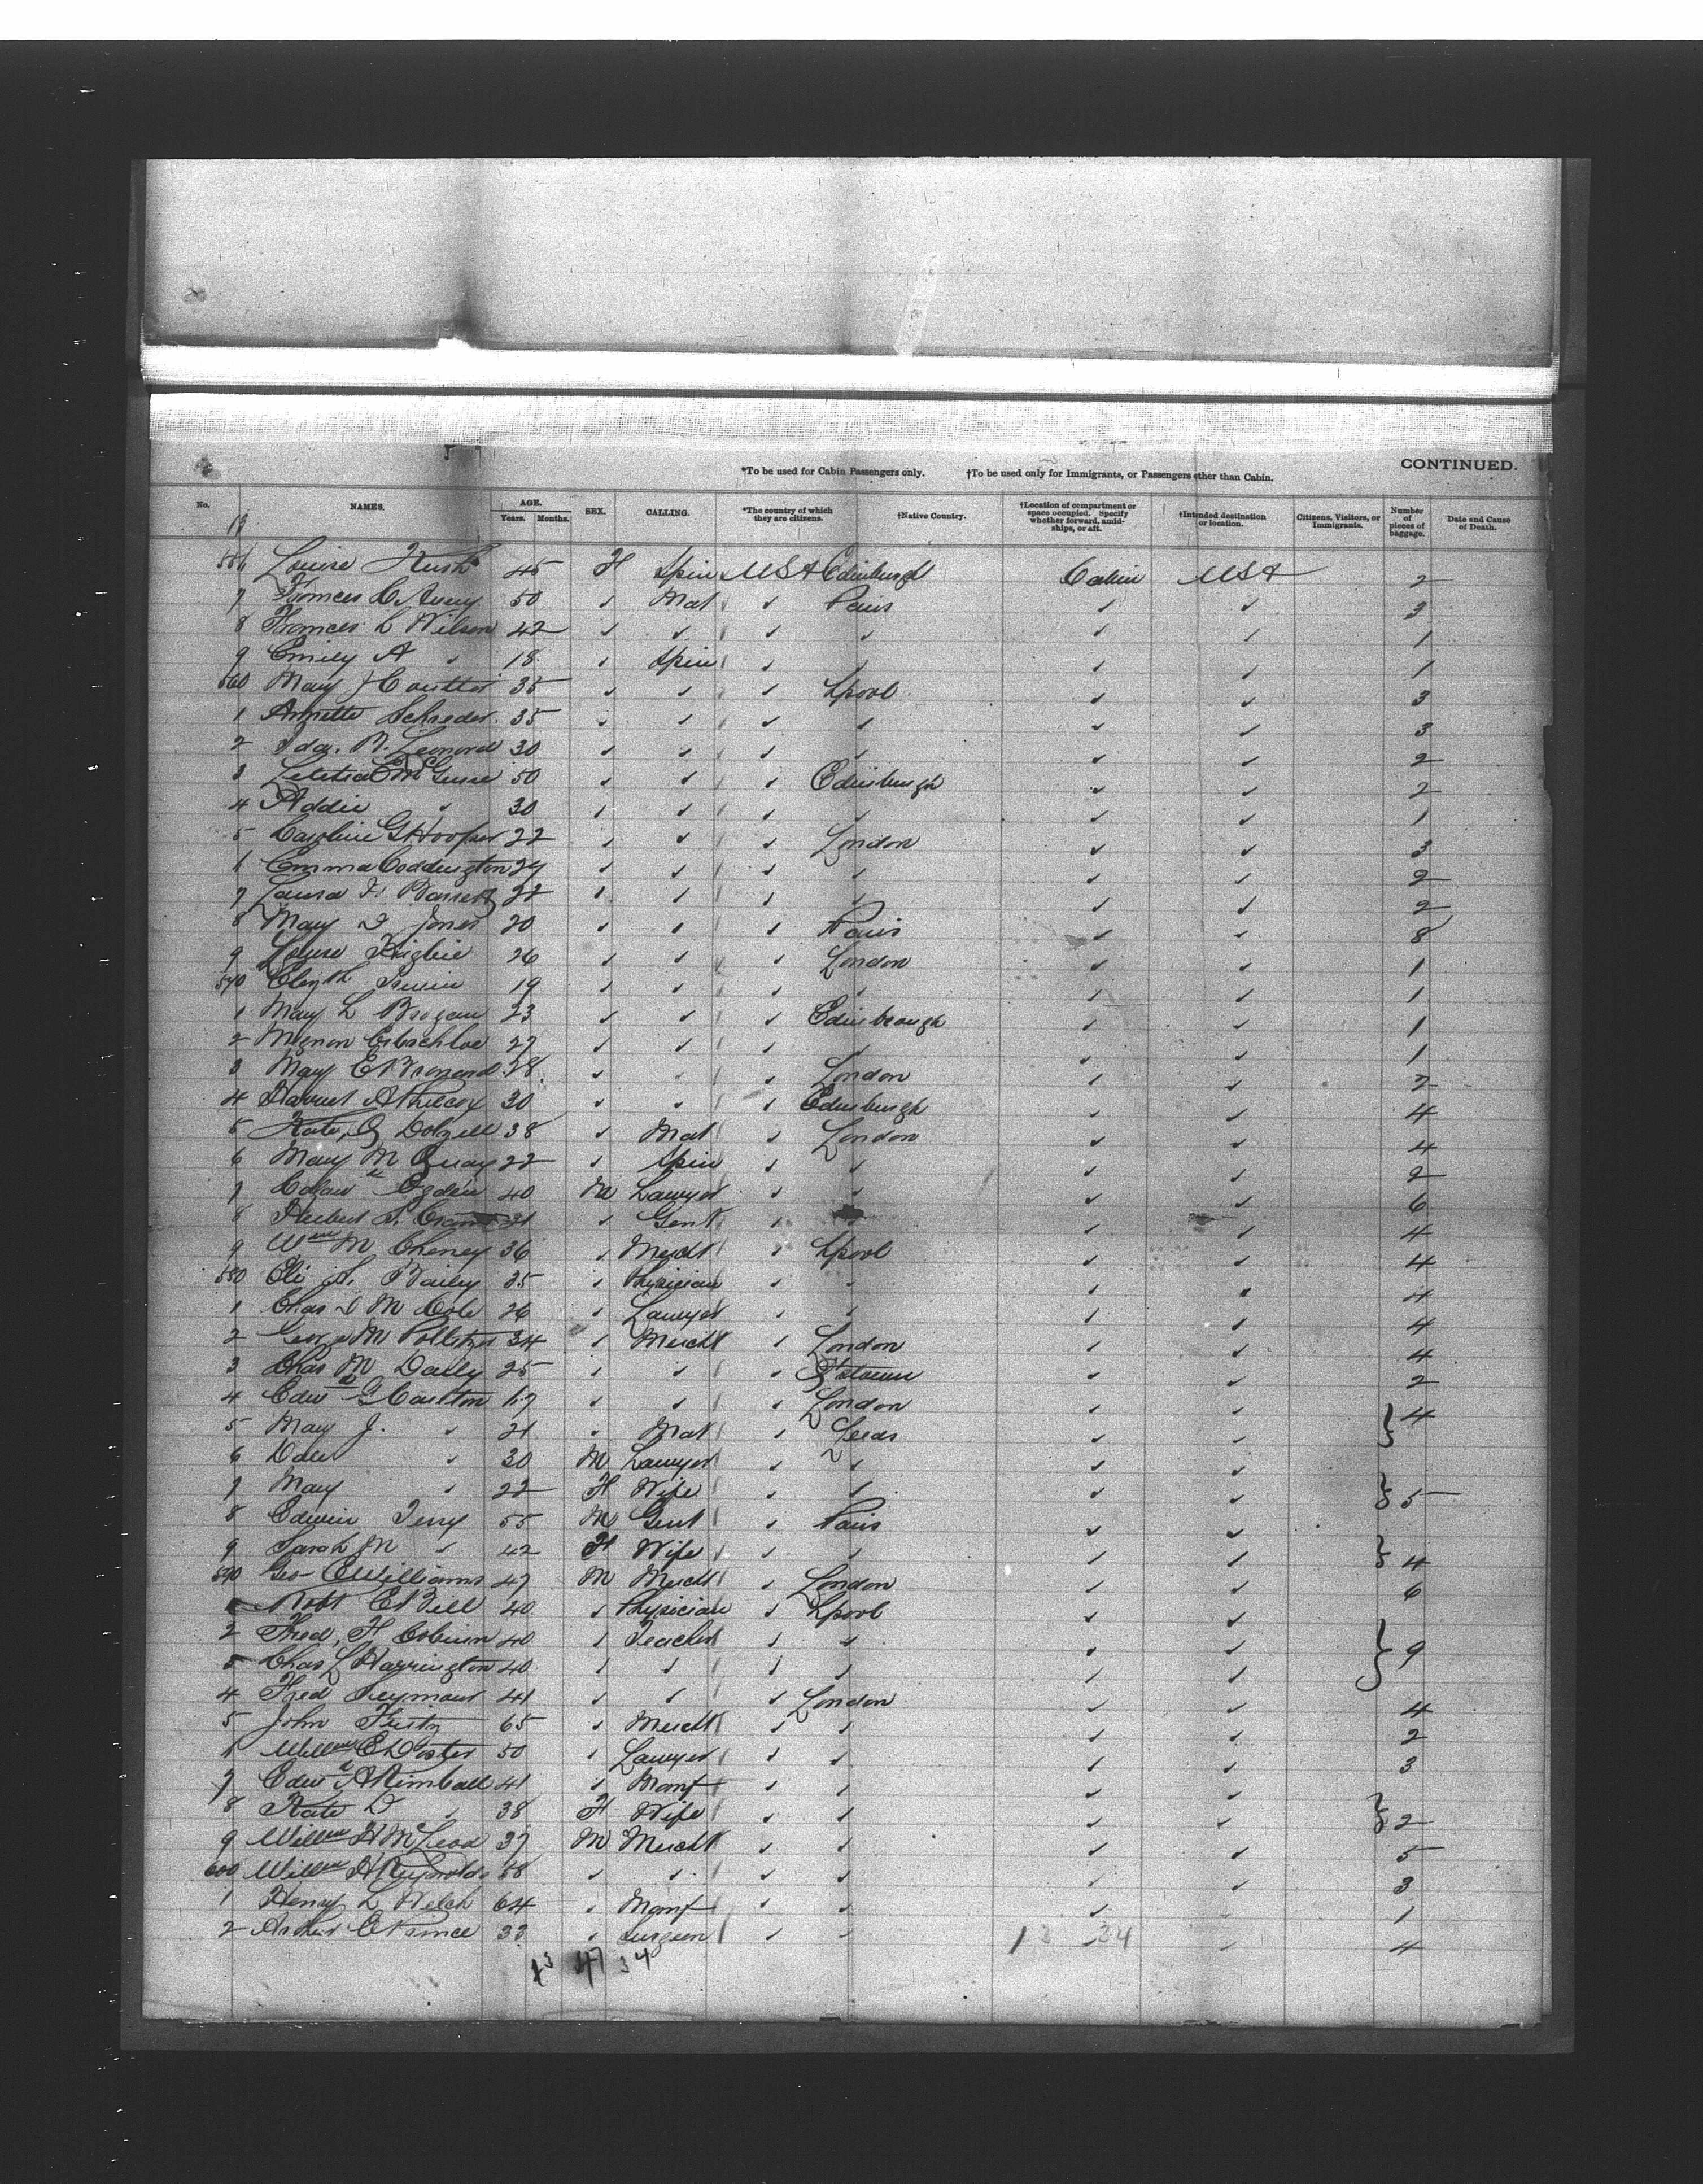 CONTINUED.
*To be used for Cabin Passengers only. †To be used only for Immigrants, or Passengers other than Cabin.
No. NAMES. AGE. Years. Months. SEX. CALLING. *The country of which they are citizens. †Native Country. †Location of compartment or space occupied. Specify whether forward, amidships, or aft. †Intended destination or location. Citizens, Visitors, or Immigrants. Number of pieces of baggage. Date and Cause of Death.
Louise 45 F Spin USA Edinburgh Cabin USA 2
7 Frances C Avery 50 ✓ Mat ✓ Paris ✓ ✓ 3
8 Frances L Wilson 42 ✓ ✓ ✓ ✓ ✓ ✓ 1
9 Emily A ✓ 18 ✓ Spin ✓ ✓ ✓ ✓ 1
560 Mary J 35 ✓ ✓ ✓ Lpool ✓ ✓ 3
1 Annette Schrader 35 ✓ ✓ ✓ ✓ ✓ ✓ 3
2 Ida. B. Leonard 30 ✓ ✓ ✓ ✓ ✓ ✓ 2
3 Letitia 50 ✓ ✓ ✓ Edinburgh ✓ ✓ 2
4 Addie ✓ 30 ✓ ✓ ✓ ✓ ✓ ✓ 1
5 Caroline G Hooper 22 ✓ ✓ ✓ London ✓ ✓ 3
Emma Coddington 24 ✓ ✓ ✓ ✓ ✓ ✓ 2
7 Laura F. 22 ✓ ✓ ✓ ✓ ✓ ✓ 2
8 Mary D Jones 20 ✓ ✓ ✓ Paris ✓ ✓ 8
9 Louise 26 ✓ ✓ ✓ London ✓ ✓ 1
570 Irwin 19 ✓ ✓ ✓ ✓ ✓ ✓ 1
1 Mary L Brogan 23 ✓ ✓ ✓ Edinbrough ✓ ✓ 1
2 Mignon 27 ✓ ✓ ✓ ✓ ✓ ✓ 1
3 Mary E 28 ✓ ✓ ✓ London ✓ ✓ 2
4 Harriet A 30 ✓ ✓ ✓ Edinburgh ✓ ✓ 4
5 Kate G Dolzell 38 ✓ Mat ✓ London ✓ ✓ 4
6 Mary M Quay 22 ✓ Spin ✓ ✓ ✓ ✓ 2
7 Ogden 40 M Lawyer ✓ ✓ ✓ ✓ 6
8 Herbert S. ✓ Gent ✓ ✓ ✓ 4
9 Wm M Cheney 36 ✓ Mercht ✓ Lpool ✓ ✓ 4
580 Eli S. Bailey 35 ✓ Physician ✓ ✓ ✓ ✓ 4
1 Chas D M Cole 26 ✓ Lawyer ✓ ✓ ✓ ✓ 4
2 George M Pollitzer 34 ✓ Mercht ✓ London ✓ ✓ 4
3 Chas M Daily 25 ✓ ✓ ✓ Qstown ✓ ✓ 2
4 Edwd G Carlton ✓ ✓ ✓ London ✓ ✓ } 4
5 Mary J. ✓ 21 ✓ Mat ✓ Leeds ✓ ✓
6 ✓ 30 M Lawyer ✓ ✓ ✓ ✓
7 Mary ✓ 22 F Wife ✓ ✓ ✓ ✓ } 5
8 Edwin Terry 55 M Gent ✓ Paris ✓ ✓
9 Sarah M ✓ 42 F Wife ✓ ✓ ✓ ✓ } 4
590 Geo E Williams 47 M Mercht ✓ London ✓ ✓ 6
Robt E Bell 40 ✓ Physician ✓ Lpool ✓ ✓
2 Fred, H 40 ✓ Teacher ✓ ✓ ✓ ✓ } 9
Chas L Harrington 40 ✓ ✓ ✓ ✓ ✓ ✓
4 Fred Seymour 41 ✓ ✓ ✓ London ✓ ✓ 4
5 John Fritz 65 ✓ Mercht ✓ ✓ ✓ ✓ 2
Willm E Doster 50 ✓ Lawyer ✓ ✓ ✓ ✓ 3
7 Edwd A Kimball 41 ✓ Manf ✓ ✓ ✓ ✓
8 Kate D ✓ 38 F Wife ✓ ✓ ✓ ✓ } 2
9 Willm H McLeod 37 M Mercht ✓ ✓ ✓ ✓ 5
600 Willm H Reynolds 58 ✓ ✓ ✓ ✓ ✓ ✓ 3
1 Henry L Welch 64 ✓ Manf ✓ ✓ ✓ ✓ 1
2 Arthur E Prince 33 ✓ Surgeon ✓ ✓ ✓ ✓ 4
13 34
13 47 34